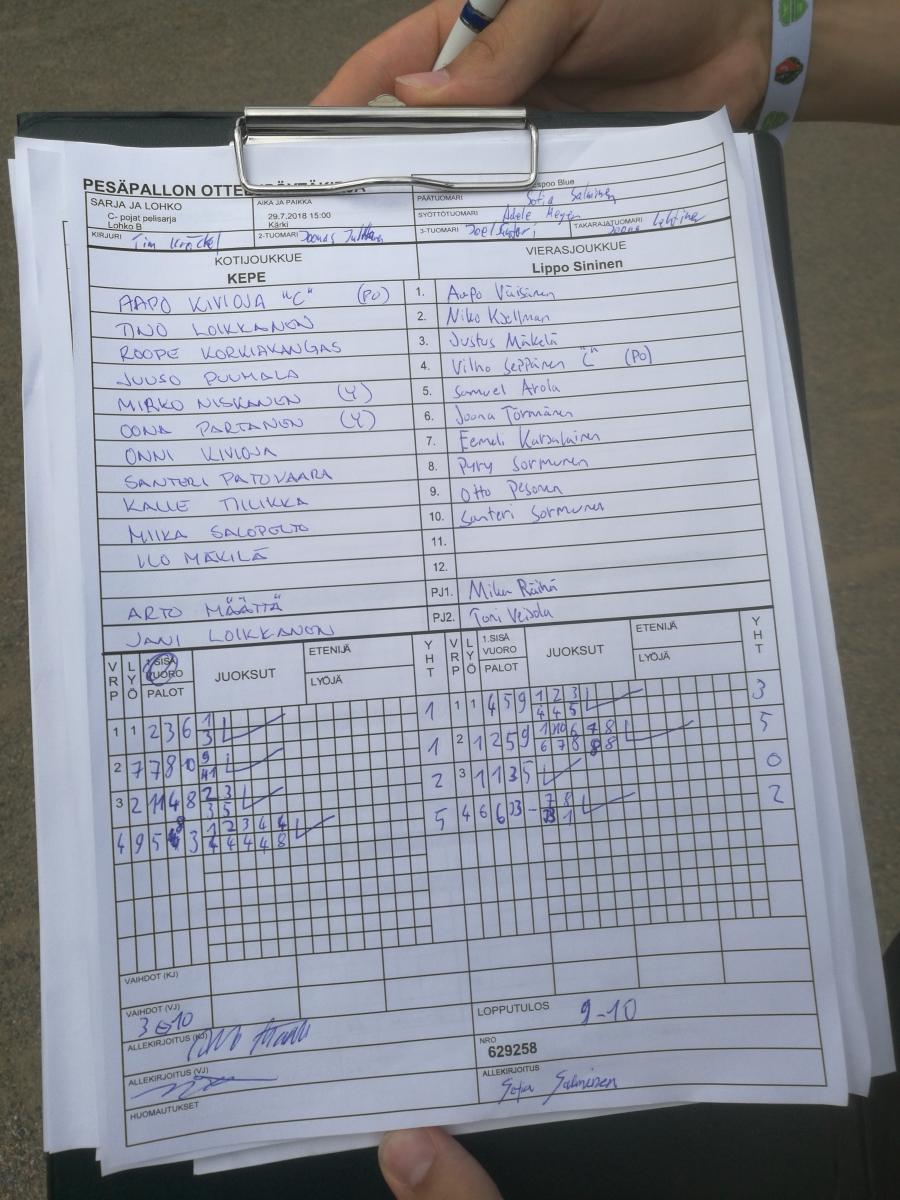 PESÄPALLON
SARJA JA LOHKO
C- pojat pelisarja
Lohko B
AIKA JA PAIKKA
29.7.2018 15:00
Kärki
PÄÄTUOMARI Sofia Salminen
Espoo Blue
SYÖTTÖTUOMARI Adele
KIRJURI Tim
2-TUOMARI Joonas
3-TUOMARI Joel
TAKARAJATUOMARI Joona
KOTIJOUKKUE
KEPE
VIERASJOUKKUE
Lippo Sininen
AAPO KIVIOJA "C" (PO) 1. Aapo Väisänen
TINO LOIKKANEN 2. Niko Kjellman
ROOPE KORKIAKANGAS 3. Justus Mäkelä
JUUSO PUUMALA 4. Vilho Seppänen "C" (PO)
MIRKO NISKANEN (Y) 5. Samuel Arola
OONA PARTANEN (Y) 6. Joona Törmänen
ONNI KIVIOJA 7. Eemeli Karjalainen
SANTERI PATOVAARA 8. Pyry Sormunen
KALLE TILLIKKA 9. Otto Pesonen
MIIKA SALOPELTO 10. Santeri Sormunen
ILO MÄKILÄ 11.
12.
ARTO MÄÄTTÄ PJ1. Mika Räihä
JANI LOIKKANEN PJ2. Toni Veijola
VRP LYÖ 1.SISÄ VUORO PALOT JUOKSUT ETENIJÄ LYÖJÄ YHT
VRP LYÖ 1.SISÄ VUORO PALOT JUOKSUT ETENIJÄ LYÖJÄ YHT
1 1 2 3 6 1 3 1
1 1 4 5 9 1 2 3 4 4 5 3
2 7 7 8 10 9 1
2 1 2 5 9 5
3 2 11 4 8 2 3 3 5 2
3 1 1 3 5 0
4 9 5 3 1 2 3 4 4 4 4 4 4 8 5
4 6 6 2
VAIHDOT (KJ)
VAIHDOT (VJ)
ALLEKIRJOITUS (KJ)
ALLEKIRJOITUS (VJ)
HUOMAUTUKSET
LOPPUTULOS 9-10
NRO
629258
ALLEKIRJOITUS
Sofia Salminen